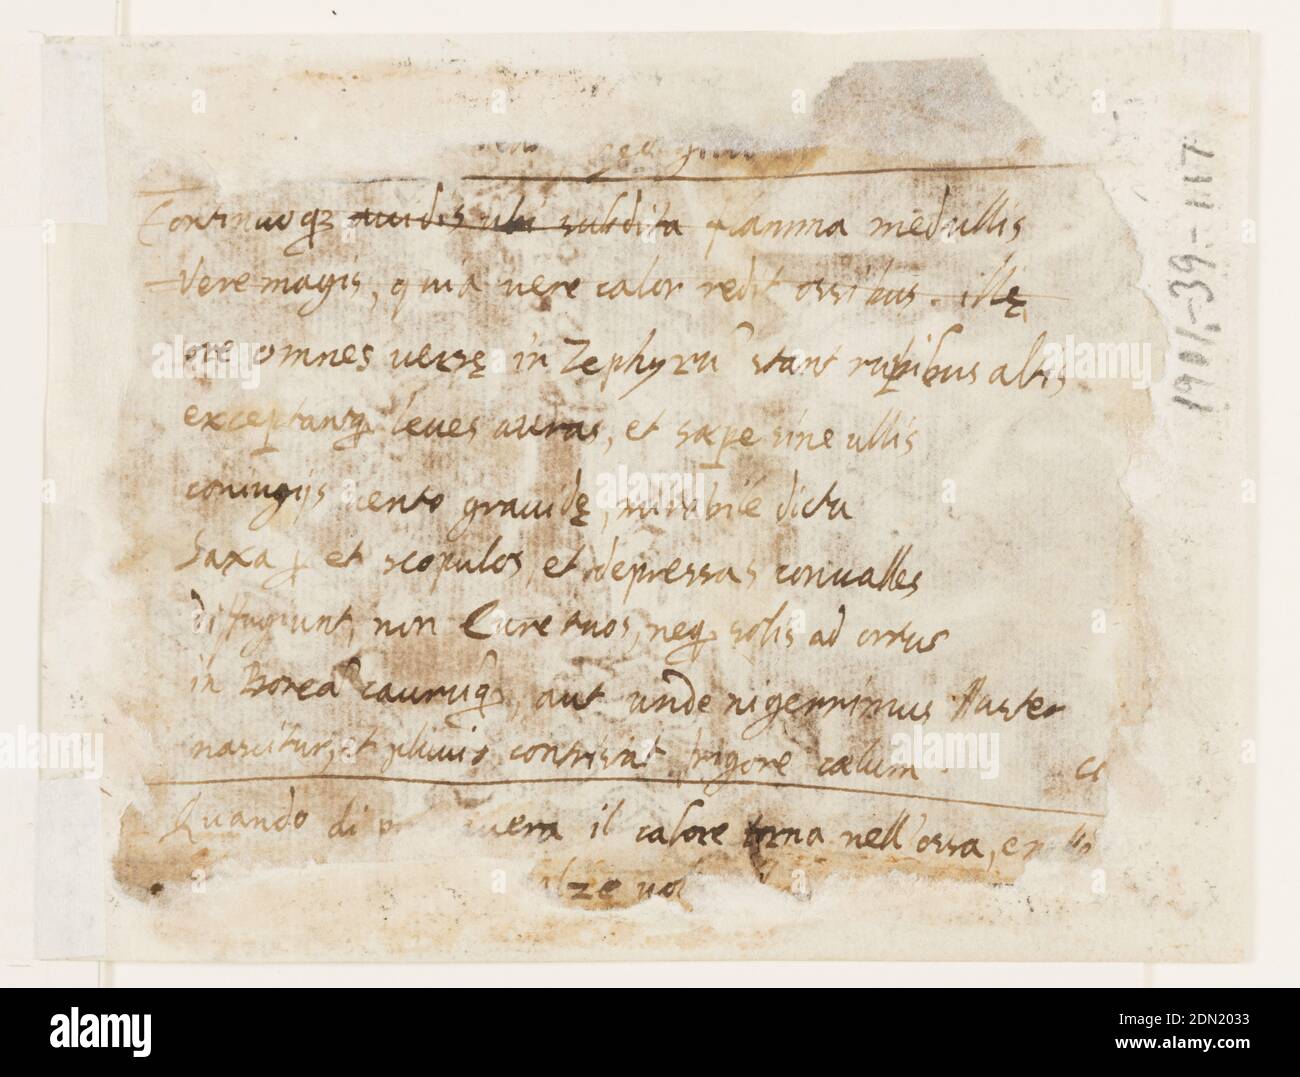 Continuoq; auidis ubi subdita flamma medullis
Vere magis, quia vere calor redit ossibus. illę
ore omnes versę in Zephyrũ stant rupibus altis
exceptantq; leues auras, et sæpe sine ullis
coniugijs vento grauidę, mirabile dictu
Saxa p et scopulos, et depressas conualles
diffugiunt, non Eure tuos, neq; solis ad ortus
in Boreã caurumq;, aut unde nigerrimus Auster
nascitur, et pluuio contristat frigore cælum.
Quando di il calore torna nell'ossa,
1901-39-1117
alamy
Image ID: 2DN2033
www.alamy.com